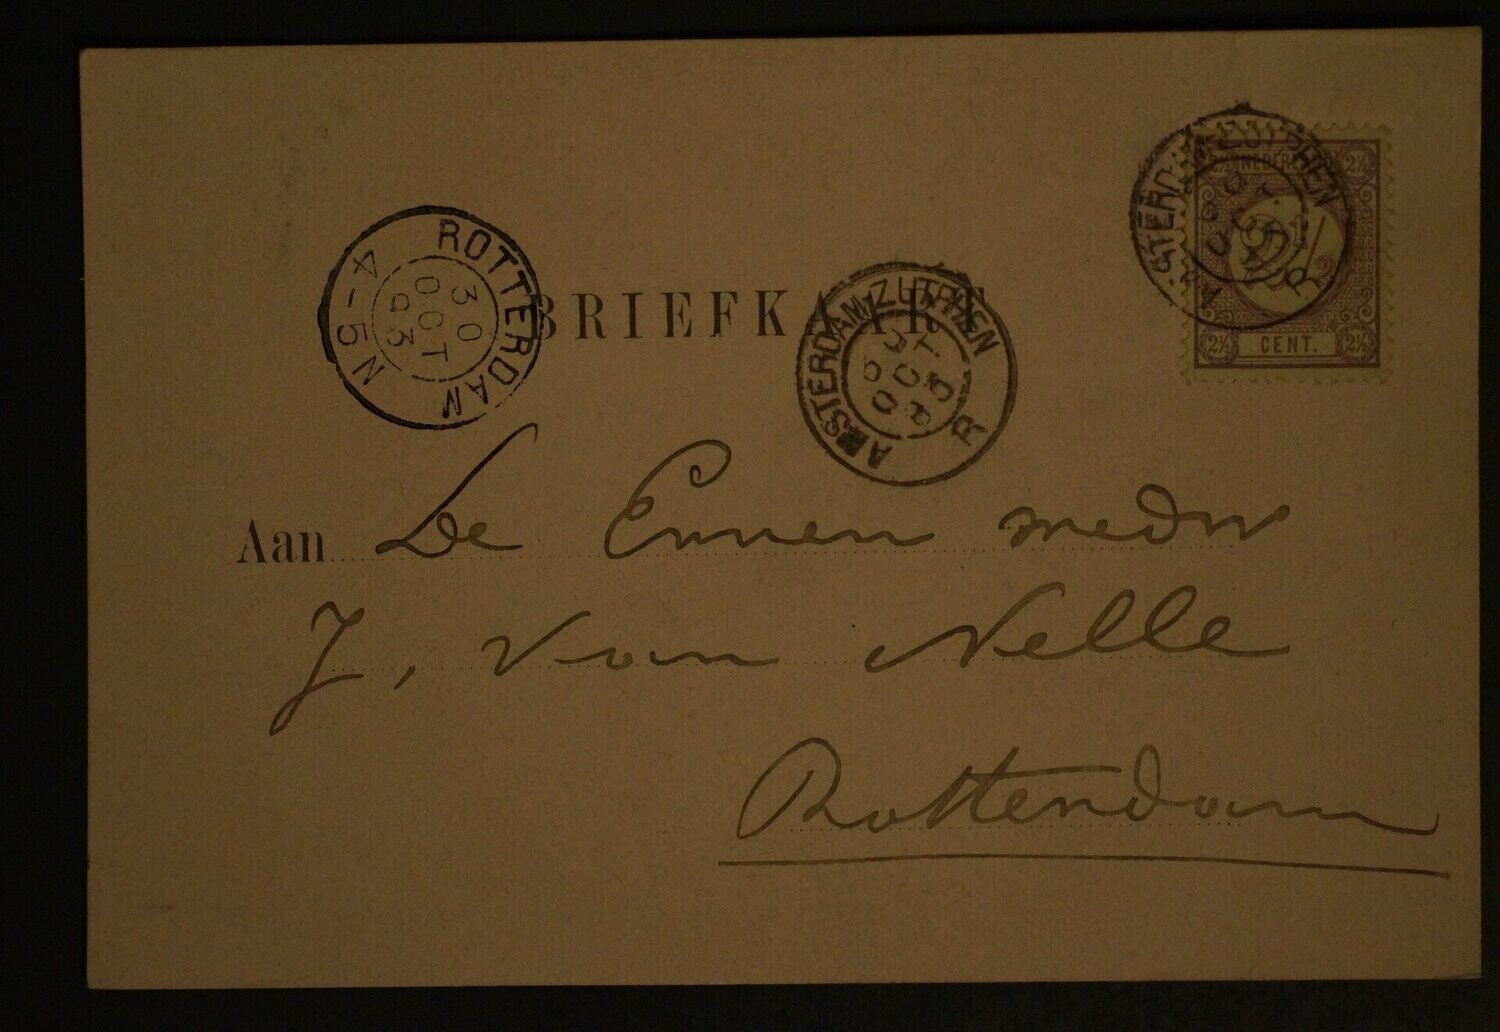 BRIEFKAART
ROTTERDAM
30
OCT
93
4-5N
AMSTERDAM-ZUTPHEN
OCT
93
R
AMSTERDAM-ZUTPHEN
R
NEDERLAND
2½
2½ CENT. 2½
Aan De Erven wedw
J, van Nelle
Rotterdam